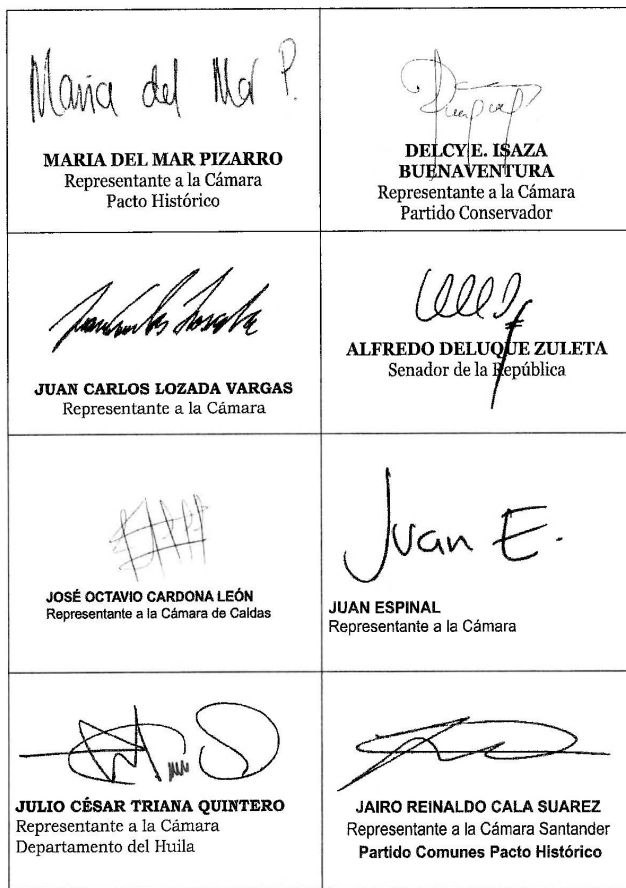 Maria del Mar P.
MARIA DEL MAR PIZARRO
Representante a la Cámara
Pacto Histórico
DELCY E. ISAZA
BUENAVENTURA
Representante a la Cámara
Partido Conservador
JUAN CARLOS LOZADA VARGAS
Representante a la Cámara
ALFREDO DELUQUE ZULETA
Senador de la República
JOSÉ OCTAVIO CARDONA LEÓN
Representante a la Cámara de Caldas
Juan E.
JUAN ESPINAL
Representante a la Cámara
JULIO CÉSAR TRIANA QUINTERO
Representante a la Cámara
Departamento del Huila
JAIRO REINALDO CALA SUAREZ
Representante a la Cámara Santander
Partido Comunes Pacto Histórico